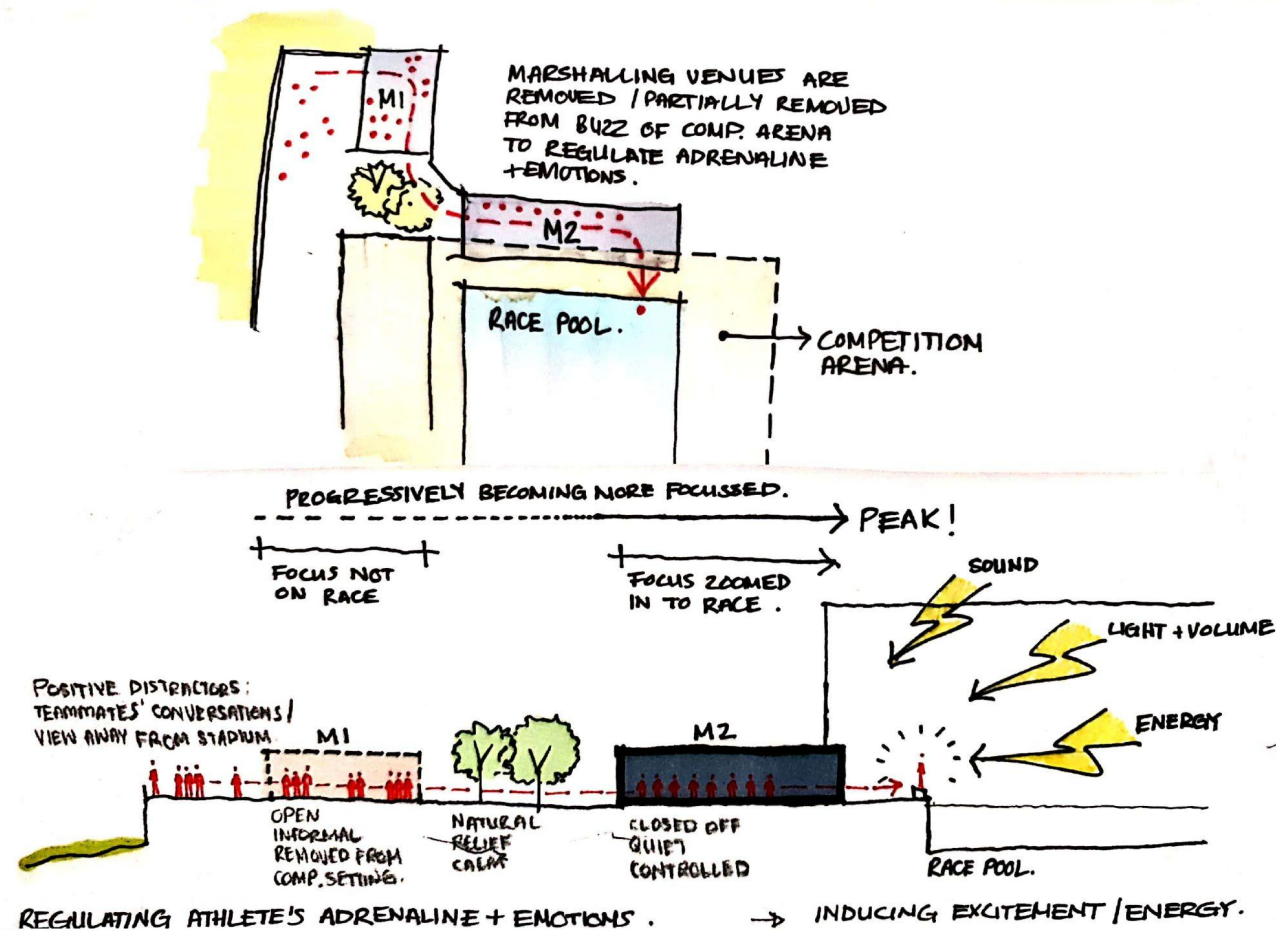 M1
MARSHALLING VENUES ARE
REMOVED / PARTIALLY REMOVED
FROM BUZZ OF COMP. ARENA
TO REGULATE ADRENALINE
+EMOTIONS.
M2
RACE POOL.
COMPETITION
ARENA.
PROGRESSIVELY BECOMING MORE FOCUSSED.
PEAK!
FOCUS NOT
ON RACE
FOCUS ZOOMED
IN TO RACE.
SOUND
LIGHT + VOLUME
ENERGY
POSITIVE DISTRACTORS:
TEAMMATES' CONVERSATIONS/
VIEW AWAY FROM STADIUM.
M1
M2
OPEN
INFORMAL
REMOVED FROM
COMP. SETTING.
NATURAL
RELIEF
CALM
CLOSED OFF
QUIET
CONTROLLED
RACE POOL.
REGULATING ATHLETE'S ADRENALINE + EMOTIONS.
INDUCING EXCITEMENT / ENERGY.